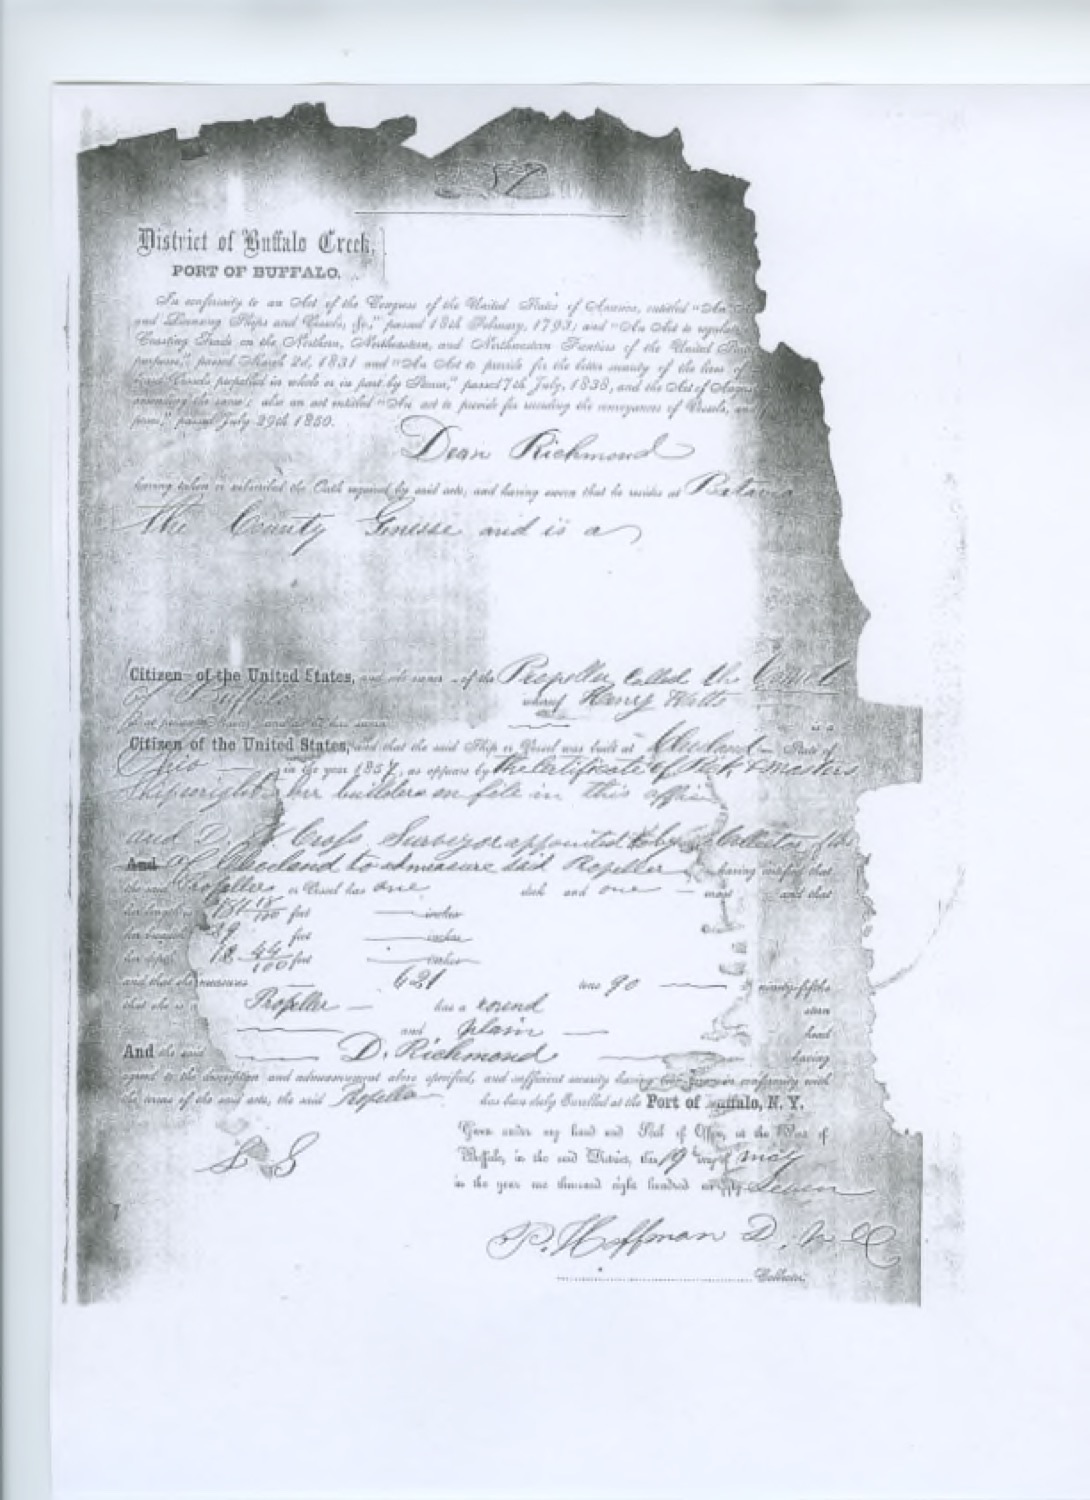 District of Buffalo Creek,
PORT OF BUFFALO.
In conformity to an Act of the Congress of the United States of America, entitled "An
and Licensing Ships and Vessels, &c," passed 18th February, 1793; and "An Act to regulate
Coasting Trade on the Northern, Northeastern, and Northwestern Frontiers of the United
purposes," passed March 2d, 1831 and "An Act to provide for the better security of the lives of
Vessels propelled in whole or in part by Steam," passed 7th July, 1838, and the Act of
amending the same; also an act entitled "An act to provide for recording the conveyances of Vessels, and
passed July 29th 1850.
Dean Richmond
having taken or subscribed the Oath required by said acts, and having sworn that he resides at Batavia
the County Genisse and is a
Citizen of the United States, and sole owner of the Propeller Called the Comet
of Buffalo whereof Henry Watts
is a
Citizen of the United States, and that the said Ship or Vessel was built at Cleveland State of
Ohio in the year 1857, as appears by the Certificate of
Shipwright her builders on file in this office
and D. Cross Surveyor appointed by Collector
And of Cleveland to admeasure said Propeller having certified that
the said Propeller or Vessel has one deck and one mast and that
her length is 18/100 feet inches
her breadth feet inches
her depth 12 44/100 feet inches
and that she measures 621 tons 90 ninety-fifths
that she is Propeller has a round stern
and plain head
And the said D. Richmond having
agreed to the description and admeasurement above specified, and sufficient security having been given in conformity with
the terms of the said acts, the said Propeller has been duly Enrolled at the Port of Buffalo, N. Y.
Given under my hand and Seal of Office, at the Port of
L S
Buffalo, in the said District, this 19th day of May
in the year one thousand eight hundred and fifty Seven
P. Hoffman D.
Collector.